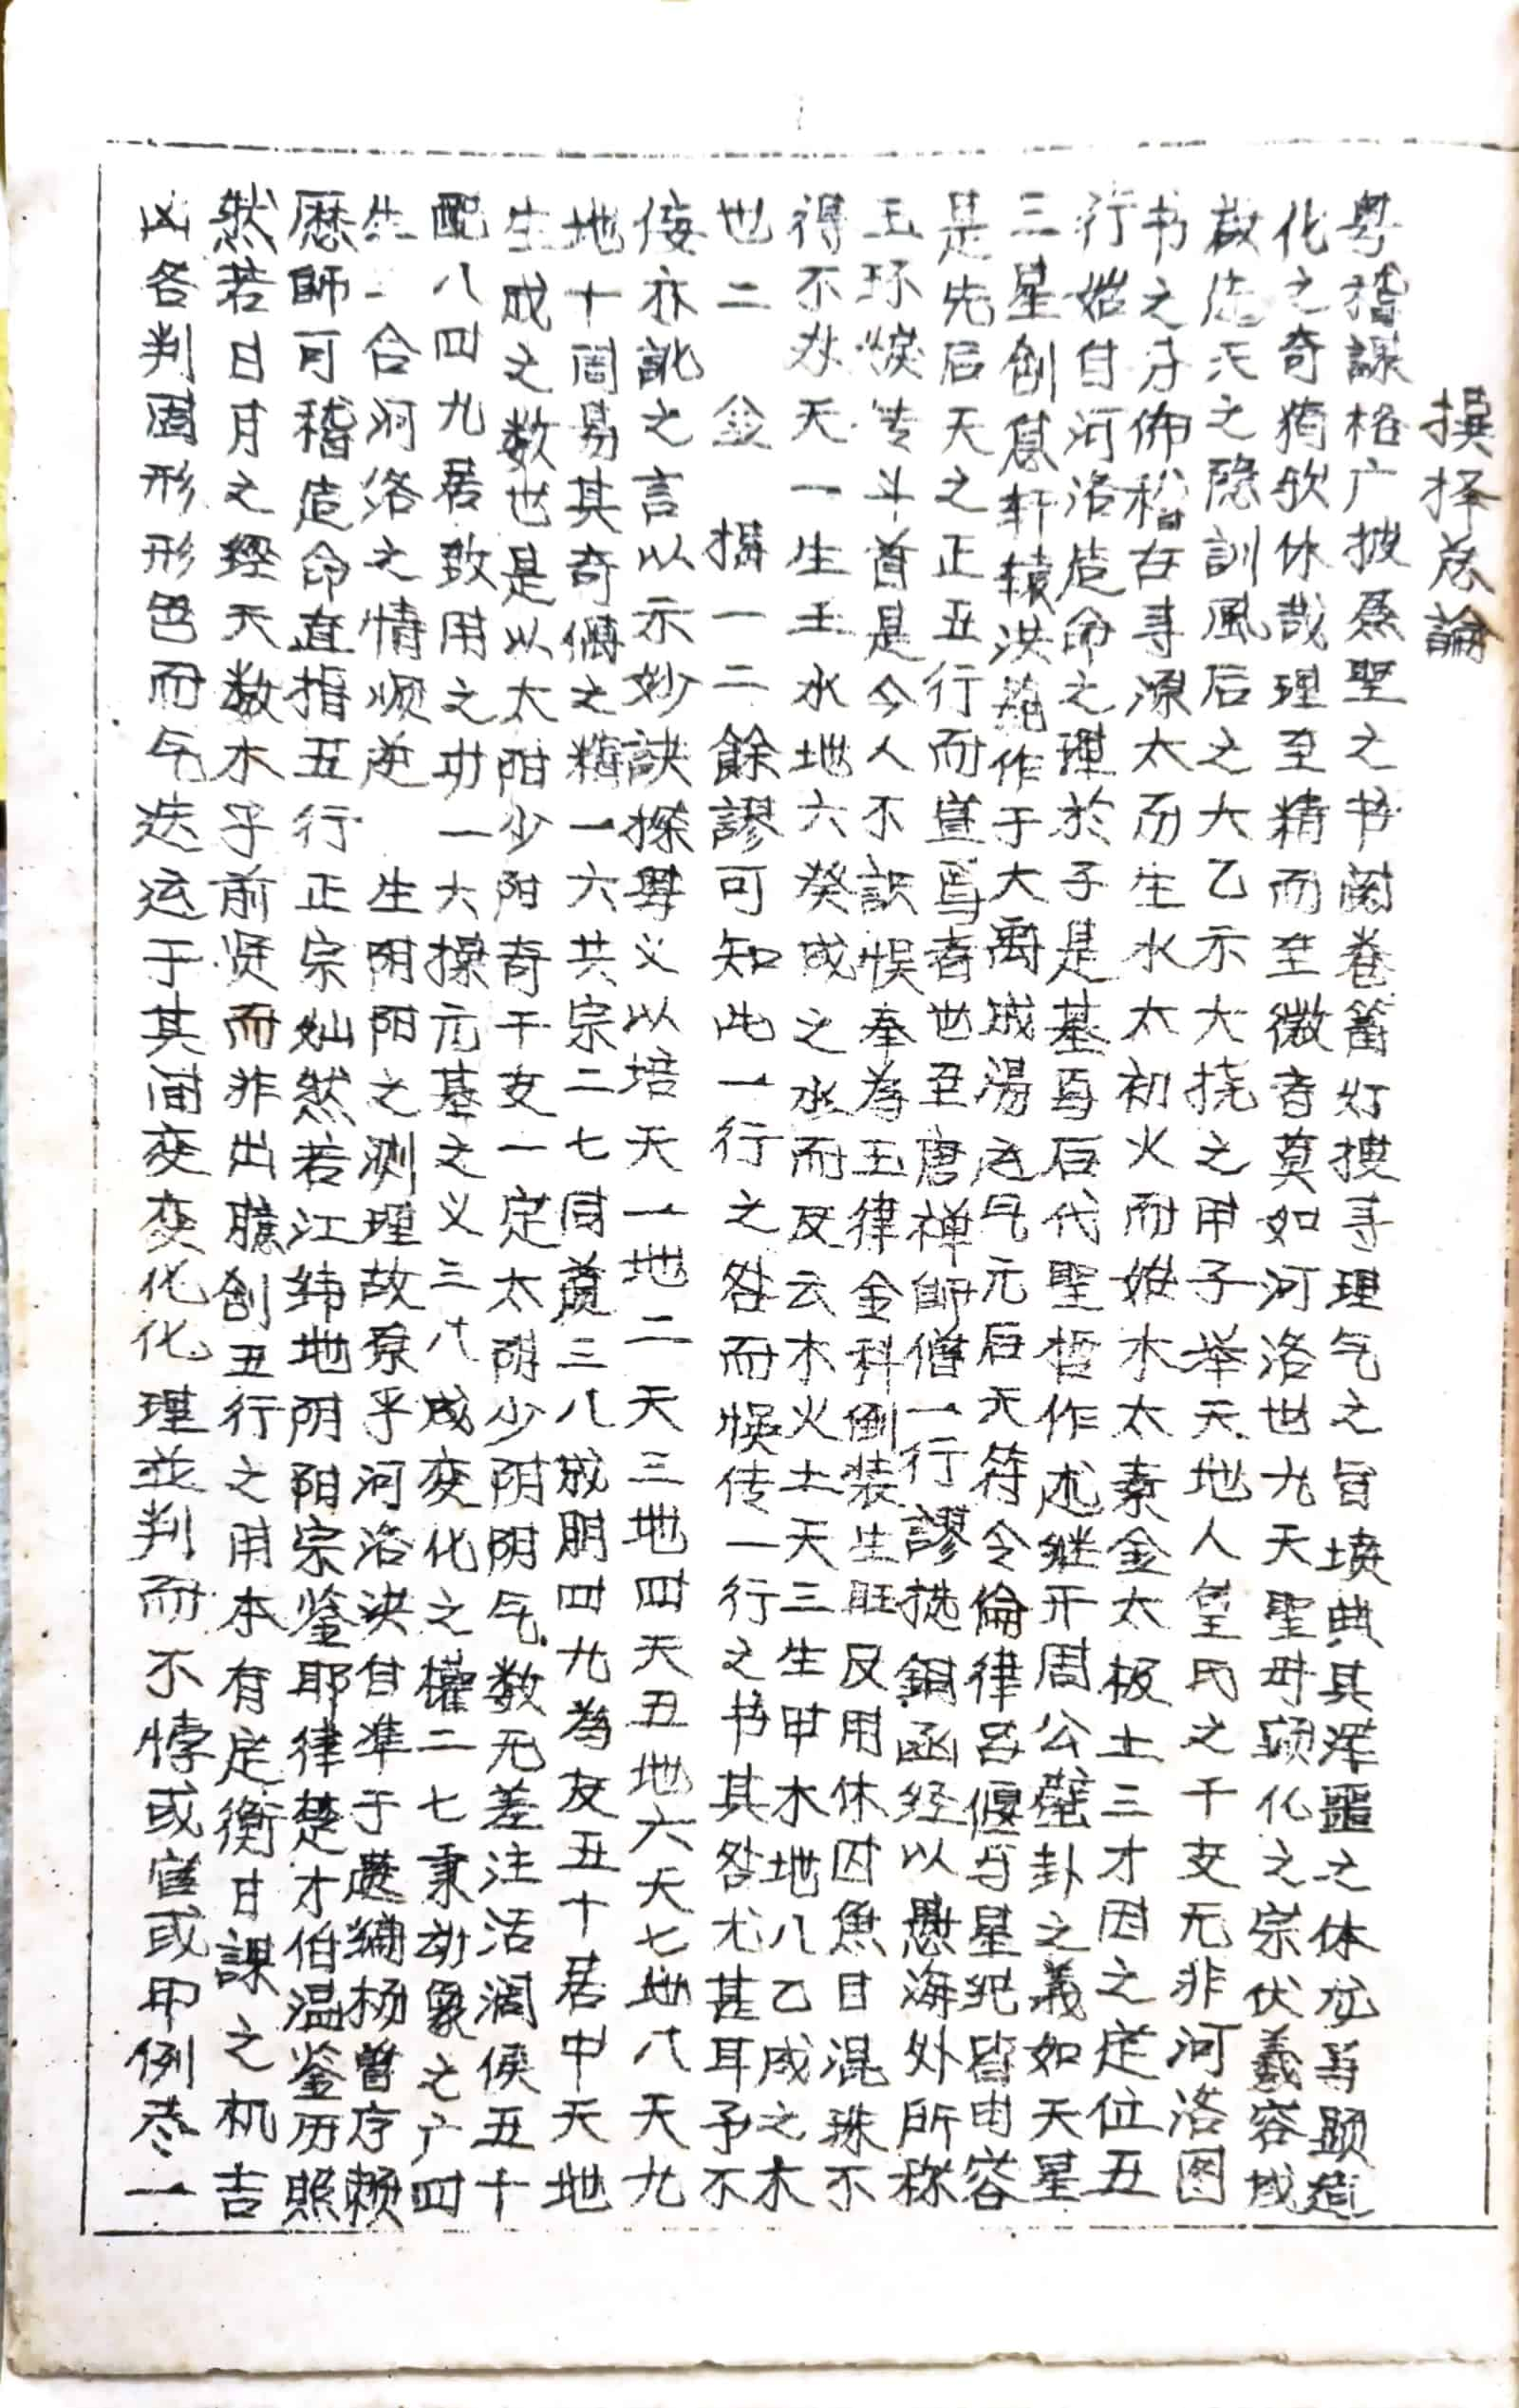 撰择总論
粤稽課格广披羲聖之书阅卷篝灯搜寻理气之旨坟典其浑噩之休龙与题造
化之奇猗欤休哉理至精而至微者莫如河洛世九天聖母顾化之宗伏羲容成
啟先天之隐訓風后之大乙示大挠之甲子举天地人皇氏之干支无非河洛图
书之分佈稽古寻源太而生水太初火而始木太素金太极土三才因之定位五
行始自河洛造命之理於子是基与后代聖哲作述继开周公蓍卦之義如天星
三星创息轩辕洪範作于大禹成湯运气元后天符令倫律吕偃与星纪皆由容
是先后天之正五行而宣焉者也丑唐禅師僧一行謬挑銅函经以愚海外所称
玉环燬传斗首是今人不訣悮奉為玉律金科倒装生旺反用休囚魚目混珠不
得不敚天一生壬水地六癸成之水而反云木火土天三生甲木地八乙成之木
也二 金 搆一二餘謬可知此一行之咎而悮传一行之书其咎尤甚耳予不
侫亦訛之言以示妙訣探舉义以培天一地二天三地四天五地六天七地八天九
地十周易其奇偶之精一六共宗二七同道三八成朋四九為友五十居中天地
生成之数也是以太阳少阳奇干支一定太阴少阴阴气数无差注活润侯五十
配八四九居致用之功一六操元基之义三八成变化之權二七秉动象之广四
生一合河洛之情顺逆 生阴阳之测理故原乎河洛决甘準于蓂绣杨曾序赖
歷師可稽造命直指五行正宗灿然若江纬地阴阳宗鉴耶律楚才伯温鉴历照
然若日月之經天数木子前贤而非出臆創五行之用本有定衡日課之机吉
凶各判固形形色而气迭运于其间变变化化理並判而不悖或官或甲例恭一